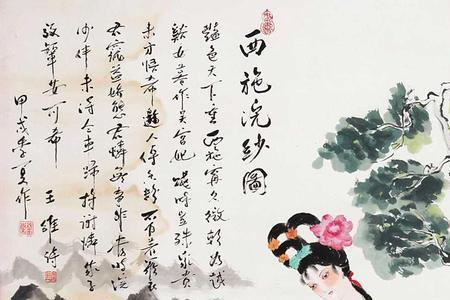 西施浣紗图
豔色天下重西施寧久微朝為越
谿女暮作吴宫妃賤時豈殊眾貴
来方悟希邀人傅香粉不自著羅衣
君寵益嬌態君憐無是非當時浣
沙伴未得仝車歸持謝憐家子
效颦安可希 王維詩
甲戌季夏作